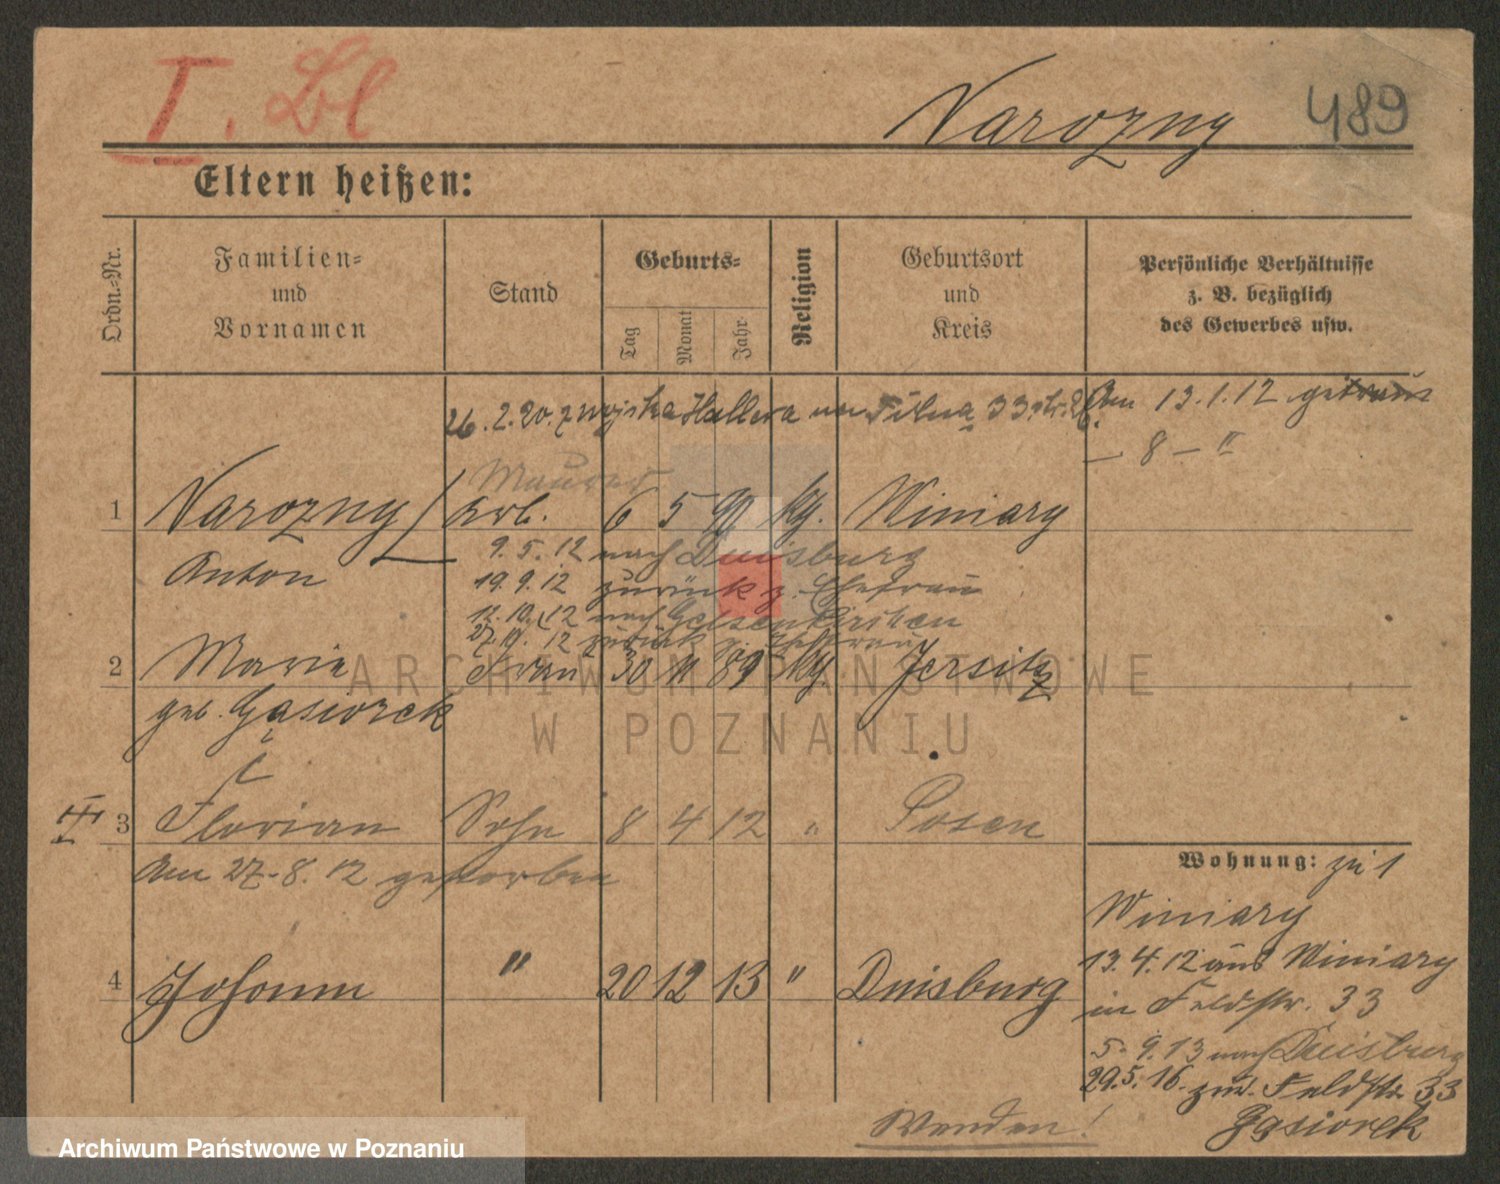 I. Bl
Narozny 489
Eltern heißen:
Ordn.-Nr.
Familien-
und
Vornamen
Stand
Geburts-
Tag
Monat
Jahr
Religion
Geburtsort
und
Kreis
Persönliche Verhältnisse
z. B. bezüglich
des Gewerbes usw.
26.2.20. z wojska Hallera 33
Am 13.1.12 getraut
— 8 — "
Maurer
1 Narozny Arb. 6 5 90 kg. Winiary
Anton
9.5.12 nach Duisburg
19.9.12 zurück z. Ehefrau
12.10.12 nach Gelsenkirchen
27.10.12 zurück z. Ehefrau
2 Maria Frau 30 11 89 kg. Jersitz
geb. Gąsiorek
3 Florian Sohn 8 4 12 " Posen
Am 27.8.12 gestorben
4 Johann " 20 12 13 " Duisburg
Wohnung: zu 1
Winiary
13.4.12 aus Winiary
in Feldstr. 33
5.9.13 nach Duisburg
29.5.16. zur. Feldstr. 33
Gąsiorek
Wenden!
ARCHIWUM PAŃSTWOWE
W POZNANIU
Archiwum Państwowe w Poznaniu